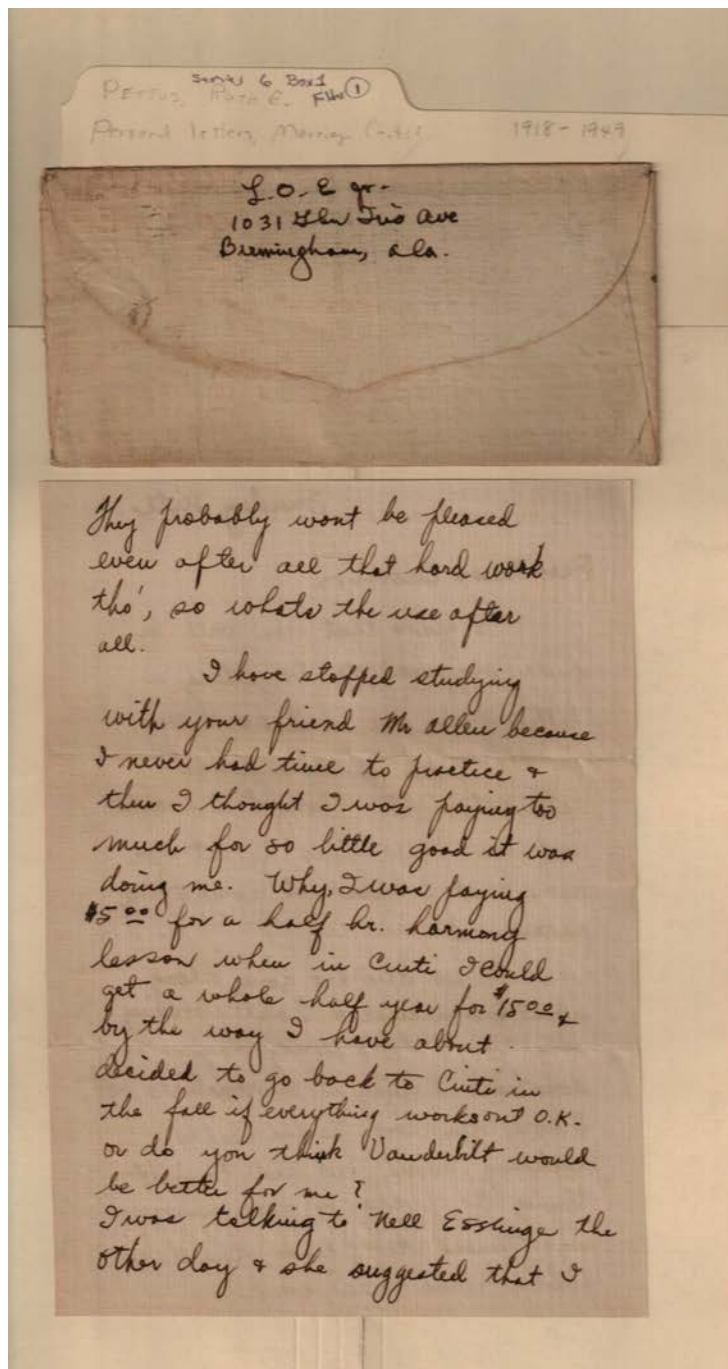 Series 6 Box 1
Pettus, Ruth E. File 1
Personal letters, Marriage 1918-1949
L.O.E jr.
1031 Glen Iris Ave
Birmingham, Ala.
They probably wont be pleased
even after all that hard work
tho', so whats the use after
all.
I have stopped studying
with your friend Mr Allen because
I never had time to practice &
then I thought I was paying too
much for so little good it was
doing me. Why, I was paying
$5.00 for a half hr. harmony
lesson when in Cinti I could
get a whole half year for $15.00 &
by the way I have about
decided to go back to Cinti in
the fall if everything works out O.K.
or do you think Vanderbilt would
be better for me?
I was talking to Nell Esslinge the
other day & she suggested that I